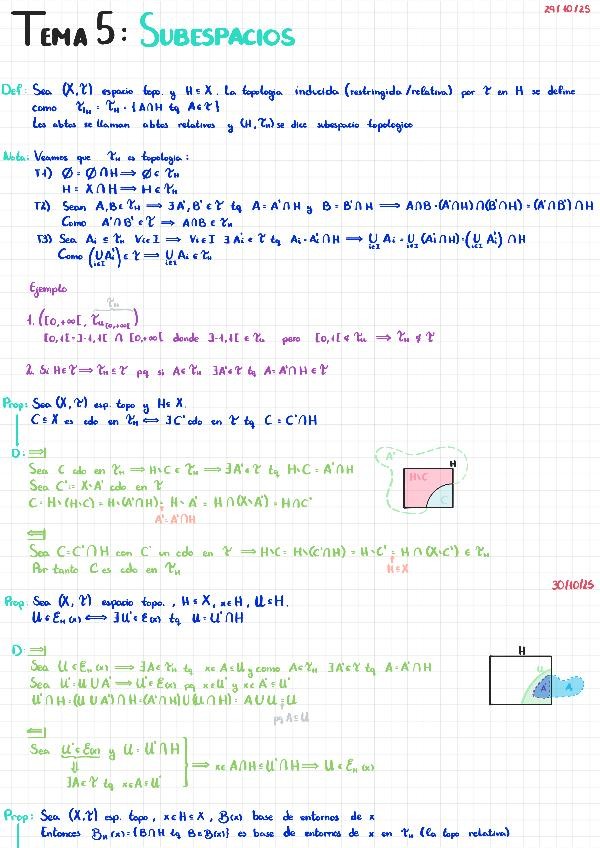 29/10/25
TEMA 5: SUBESPACIOS
Def: Sea (X,τ) espacio topo. y H⊆X. La topología inducida (restringida/relativa) por τ en H se define
como τ|H = τH = {A∩H tq A∈τ}
Los abtos se llaman abtos relativos y (H,τH) se dice subespacio topologico
Nota: Veamos que τH es topología:
T1) Ø = Ø∩H ⟹ Ø∈τH
H = X∩H ⟹ H∈τH
T2) Sean A,B∈τH ⟹ ∃A',B'∈τ tq A=A'∩H y B=B'∩H ⟹ A∩B=(A'∩H)∩(B'∩H)=(A'∩B')∩H
Como A'∩B'∈τ ⟹ A∩B∈τH
T3) Sea Ai∈τH ∀i∈I ⟹ ∀i∈I ∃Ai'∈τ tq Ai=Ai'∩H ⟹ ⋃i∈I Ai = ⋃i∈I (Ai'∩H)=(⋃i∈I Ai')∩H
Como (⋃i∈I Ai')∈τ ⟹ ⋃i∈I Ai∈τH
Ejemplo
τH
1. ([0,+∞[, τu[0,+∞[)
[0,1[=]-1,1[ ∩ [0,+∞[ donde ]-1,1[∈τu pero [0,1[∉τu ⟹ τH⊄τ
2. Si H∈τ ⟹ τH⊆τ pq si A∈τH ∃A'∈τ tq A=A'∩H∈τ
Prop: Sea (X,τ) esp. topo y H⊆X.
C⊆X es cdo en τH ⟺ ∃C' cdo en τ tq C=C'∩H
D: ⟹
Sea C cdo en τH ⟹ H\C∈τH ⟹ ∃A'∈τ tq H\C=A'∩H
Sea C'=X\A' cdo en τ
C=H\(H\C)=H\(A'∩H)=H\A'=H∩(X\A')=H∩C'
A'=A'∩H
A'
H
H\C
C
⟸
Sea C=C'∩H con C' un cdo en τ ⟹ H\C=H\(C'∩H)=H\C'=H∩(X\C')∈τH
Por tanto C es cdo en τH
H⊆X
30/10/25
Prop: Sea (X,τ) espacio topo., H⊆X, x∈H, U⊆H.
U∈EH(x) ⟺ ∃U'∈E(x) tq U=U'∩H
D: ⟹
Sea U∈EH(x) ⟹ ∃A∈τH tq x∈A⊆U y como A∈τH ∃A'∈τ tq A=A'∩H
Sea U'=U∪A' ⟹ U'∈E(x) pq x∈U' y x∈A'⊆U'
U'∩H=(U∪A')∩H=(A'∩H)∪(U∩H)=A∪U=U
pq A⊆U
H
U
A
A'
⟸
Sea U'∈E(x) y U=U'∩H
⇓
∃A∈τ tq x∈A⊆U'
⟹ x∈A∩H⊆U'∩H ⟹ U∈EH(x)
Prop: Sea (X,τ) esp. topo, x∈H⊆X, B(x) base de entornos de x
Entonces BH(x)={B∩H tq B∈B(x)} es base de entornos de x en τH (la topo relativa)